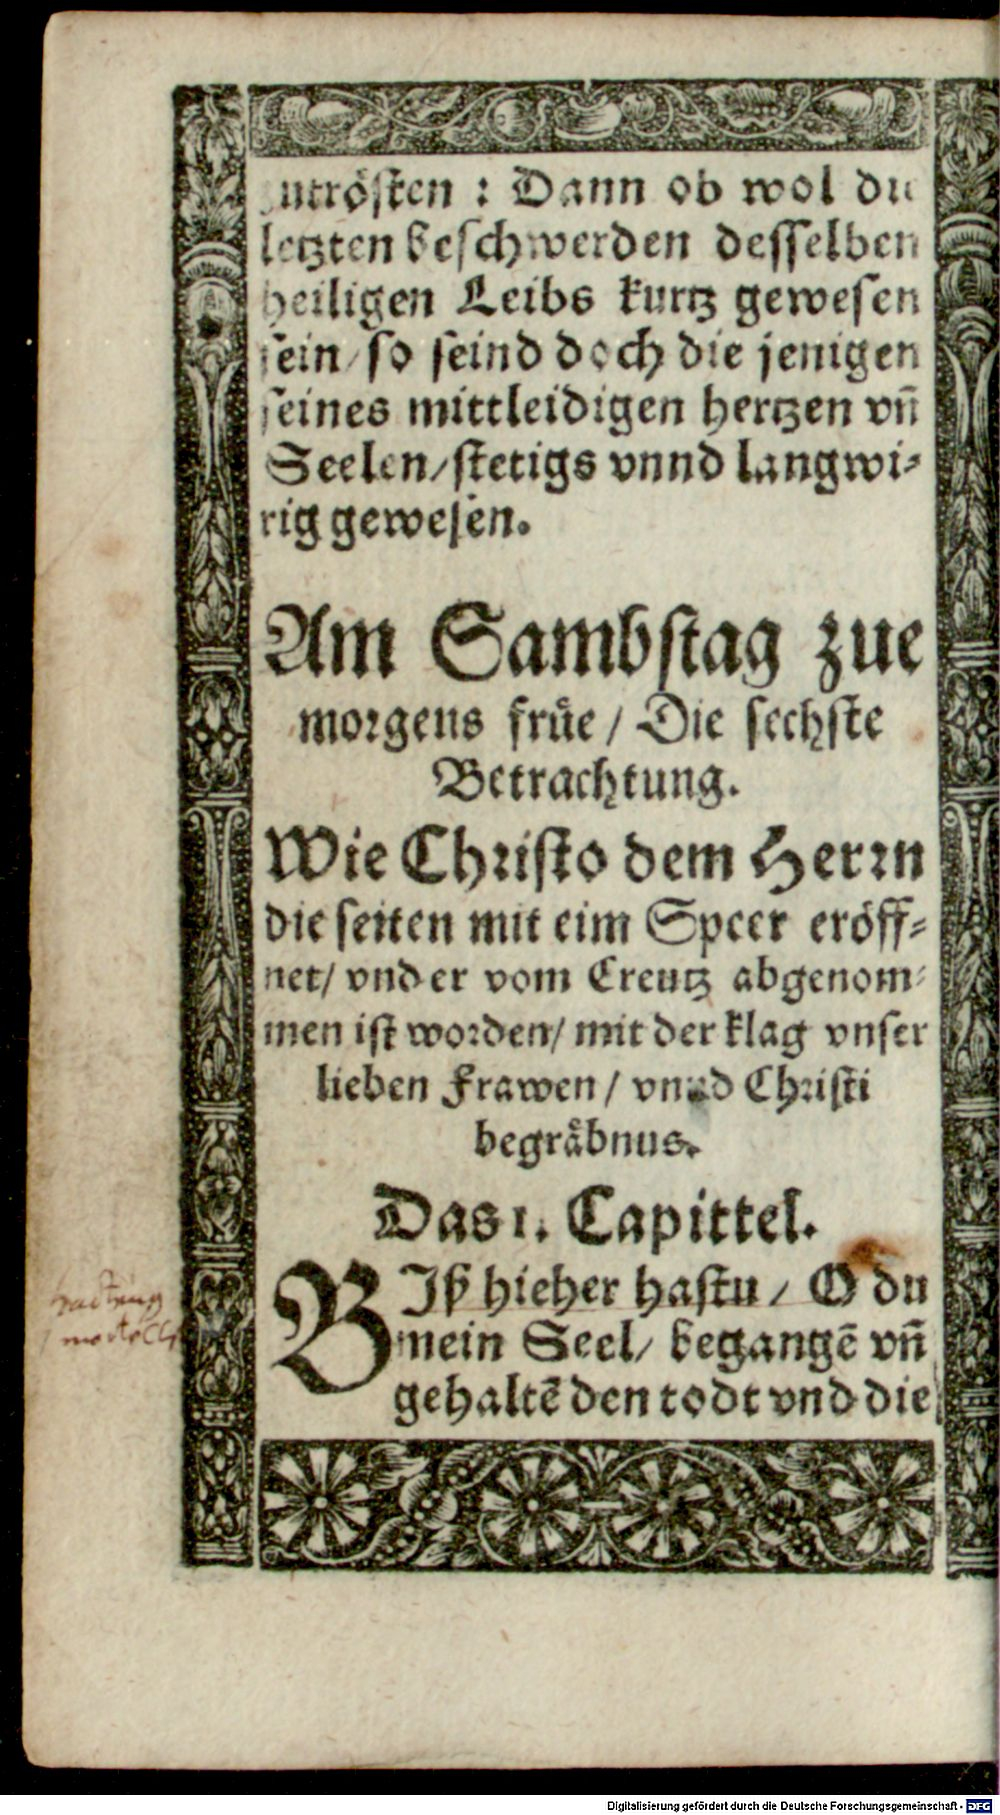 zutrösten : Dann ob wol die
letzten beschwerden desselben
heiligen Leibs kurtz gewesen
sein/ so seind doch die jenigen
seines mittleidigen hertzen vñ
Seelen/ stetigs vnnd langwi⸗
rig gewesen.
Am Sambstag zue
morgens früe / Die sechste
Betrachtung.
Wie Christo dem Herrn
die seiten mit eim Speer eröff⸗
net/ vnd er vom Creutz abgenom⸗
men ist worden/ mit der klag vnser
lieben Frawen / vnnd Christi
begräbnus.
Das 1. Capittel.
BIß hieher hastu / O du
mein Seel/ begangẽ vñ
gehaltẽ den todt vnd die
Digitalisierung gefördert durch die Deutsche Forschungsgemeinschaft - DFG